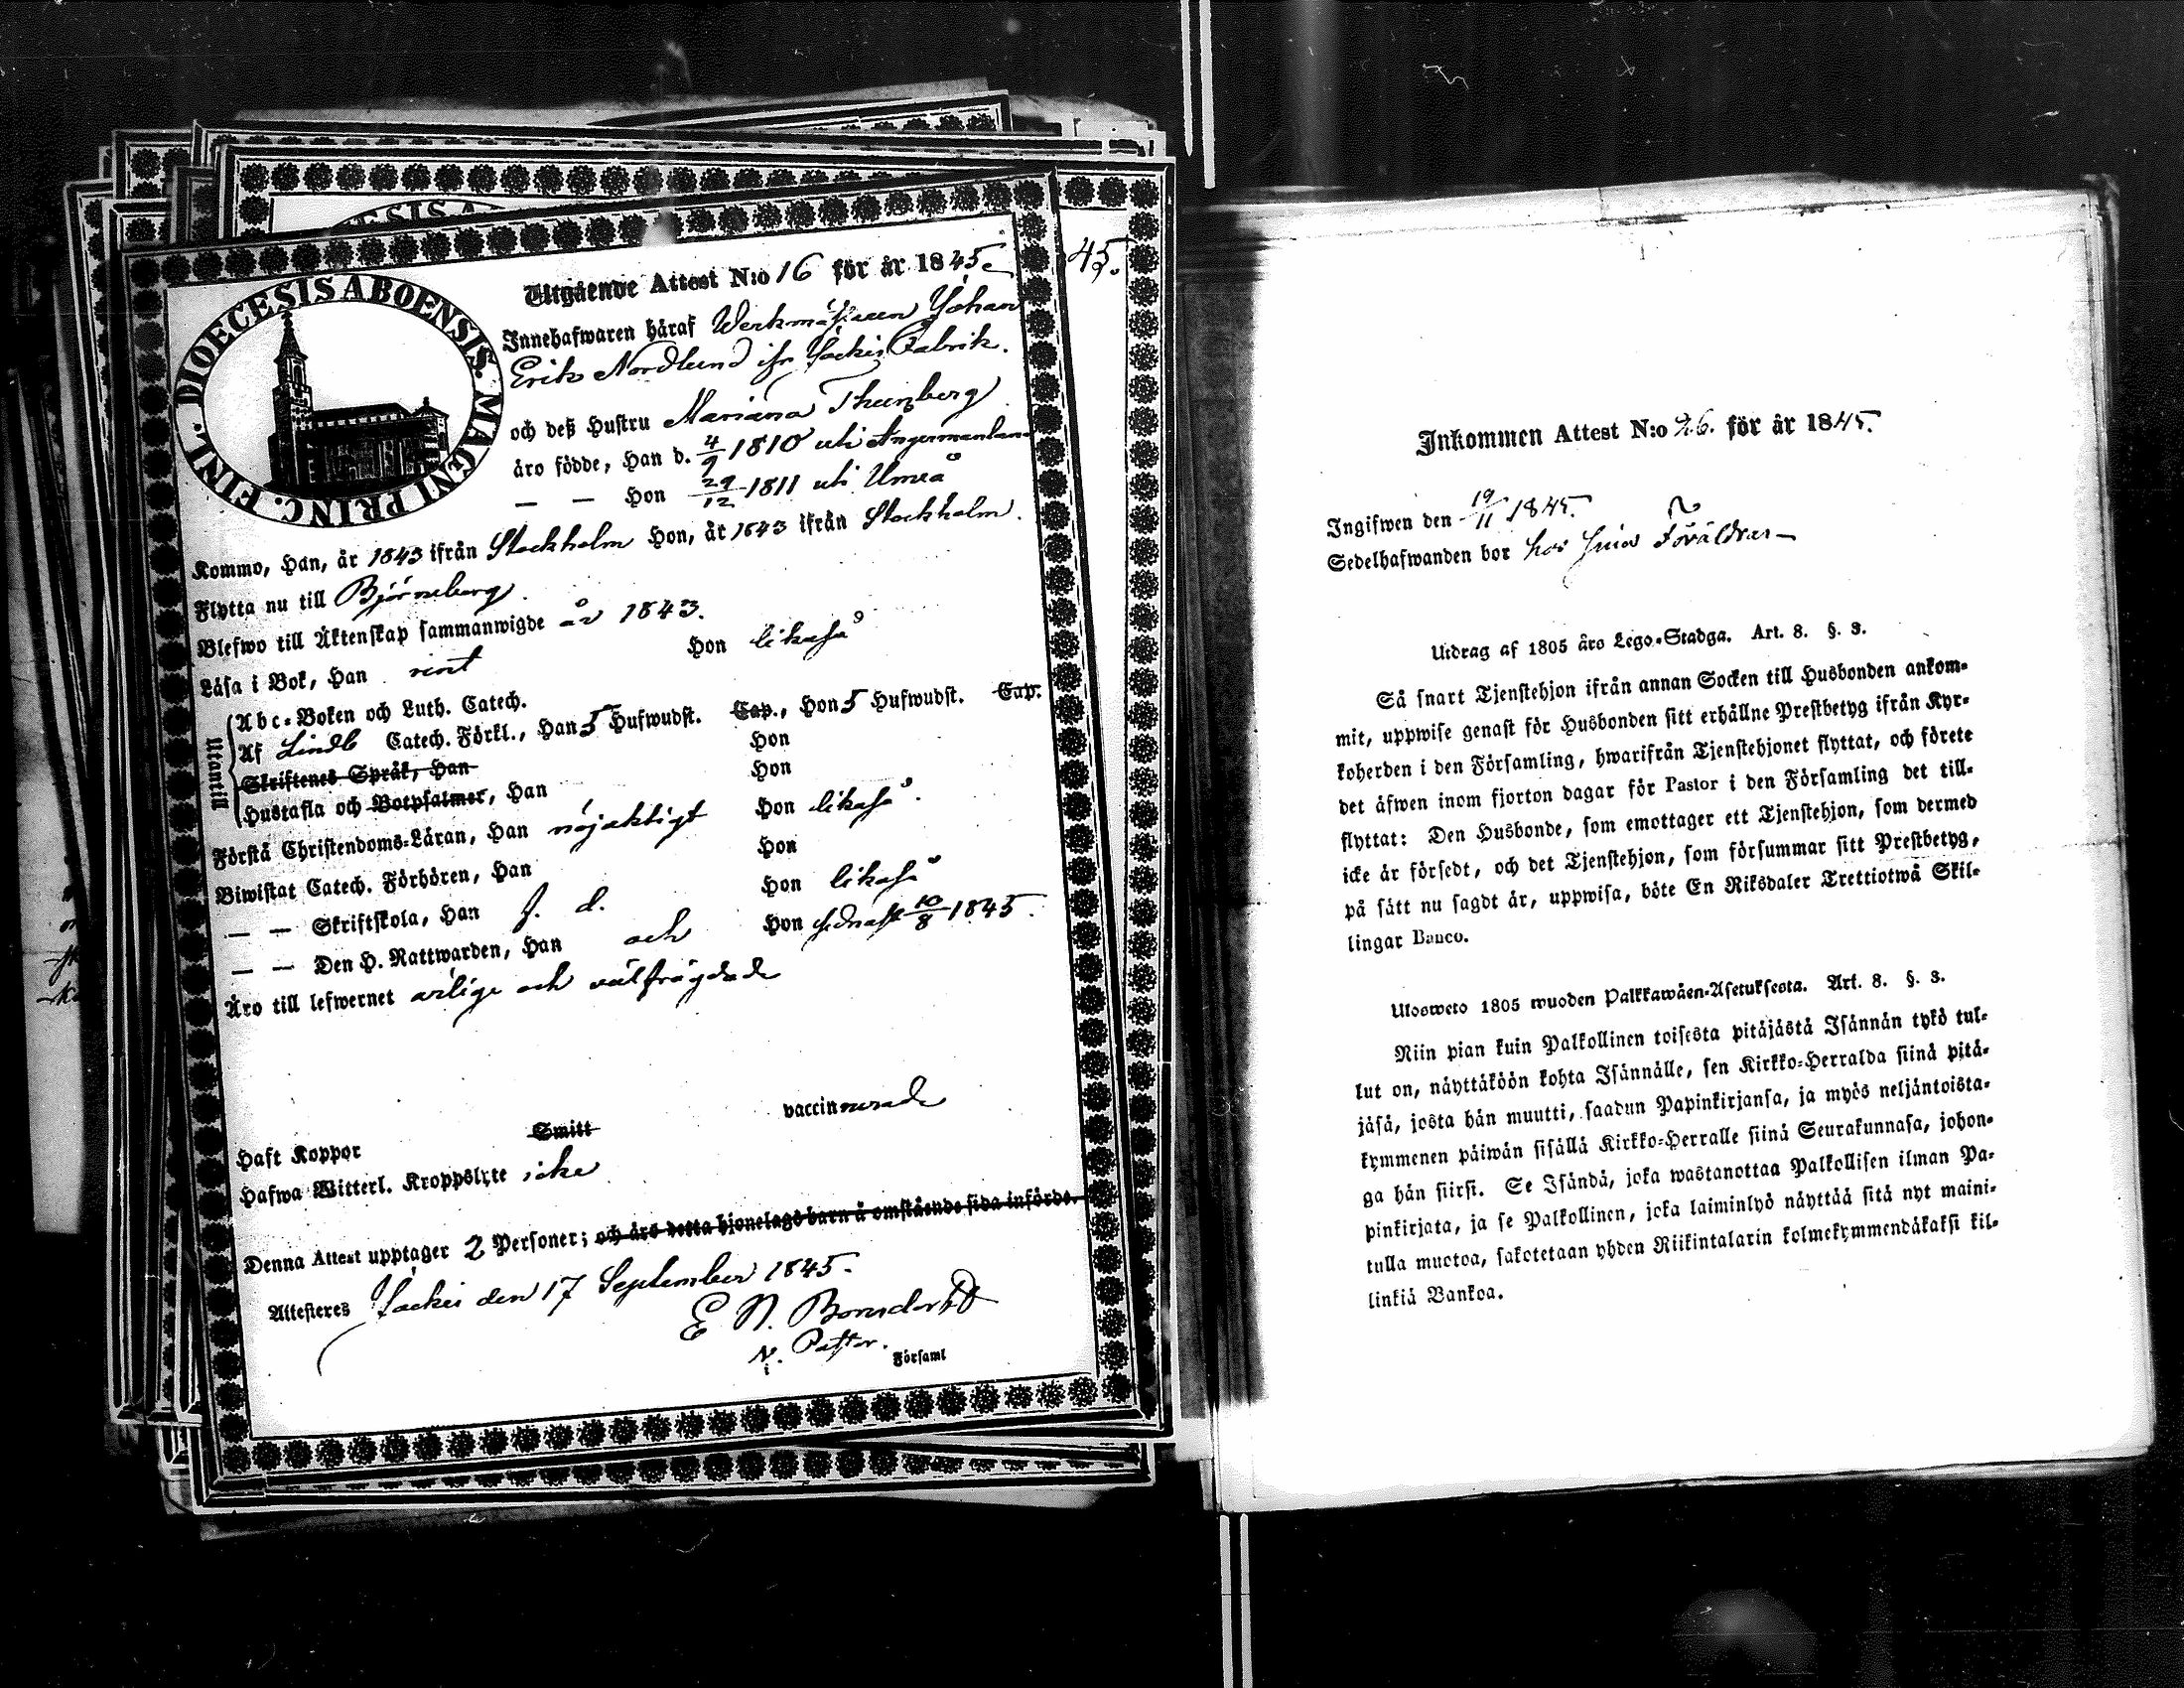 DIOECESIS ABOENSIS. MAGNI PRINC. FINL.
Utgående Attest N:o 16 för år 1845.
Innehafwaren häraf Werkmästaren Johan
Erik Nordlund ifr Jockis Fabrik.
och deß Hustru Mariana Thunberg
äro födde, Han d. 4/9 1810 uti Angermanlan
— — Hon 29/12 1811 uti Umeå
Kommo, Han, år 1843 ifrån Stockholm Hon, år 1843 ifrån Stockholm.
Flytta nu till Björneborg.
Blefwo till Äktenskap sammanwigde år 1843.
Läsa i Bok, Han rent Hon likaså
Utantill
Abc-Boken och Luth. Catech.
Af Lindb Catech. Förkl., Han 5 Hufwudst. Cap., Hon 5 Hufwudst. Cap.
Skriftenes Språk, Han Hon
Hustafla och Botpsalmer, Han Hon
Förstå Christendoms-Läran, Han nöjaktigt Hon likaså.
Biwistat Catech. Förhören, Han Hon
— — Skriftskola, Han f. d. Hon likaså
— — Den H. Nattwarden, Han och Hon sednast 10/8 1845.
Äro till lefwernet ärlige och välfrägdade
Haft Koppor Smitt vaccinnerade
Hafwa Witterl. Kroppslyte icke
Denna Attest upptager 2 Personer; och äro detta hjonelags barn å omstående sida införde.
Attesteres Jockis den 17 September 1845.
E N. Bonsdorff
Pastor.
Församl
45.
Inkommen Attest N:o 26. för år 1845.
Ingifwen den 19/11 1845.
Sedelhafwanden bor hos sina Föräldrar
Utdrag af 1805 års Lego-Stadga. Art. 8. §. 3.
Så snart Tjenstehjon ifrån annan Socken till Husbonden ankom-
mit, uppwise genast för Husbonden sitt erhållne Prestbetyg ifrån Kyr-
koherden i den Församling, hwarifrån Tjenstehjonet flyttat, och förete
det äfwen inom fjorton dagar för Pastor i den Församling det till-
flyttat: Den Husbonde, som emottager ett Tjenstehjon, som dermed
icke är försedt, och det Tjenstehjon, som försummar sitt Prestbetyg,
på sätt nu sagdt är, uppwisa, böte En Riksdaler Trettiotwå Skil-
lingar Banco.
Ulosweto 1805 wuoden Palkkawäen-Asetuksesta. Art. 8. §. 3.
Niin pian kuin Palkollinen toisesta pitäjästä Isännän tykö tul-
lut on, näyttäköön kohta Isännälle, sen Kirkko-Herralda siinä pitä-
jäsä, josta hän muutti, saadun Papinkirjansa, ja myös neljäntoista-
kymmenen päiwän sisällä Kirkko-Herralle siinä Seurakunnasa, johon-
ga hän siirsi. Se Isändä, joka wastanottaa Palkollisen ilman Pa-
pinkirjata, ja se Palkollinen, joka laiminlyö näyttää sitä nyt maini-
tulla muotoa, sakotetaan yhden Riikintalarin kolmekymmendäkaksi kil-
linkiä Bankoa.